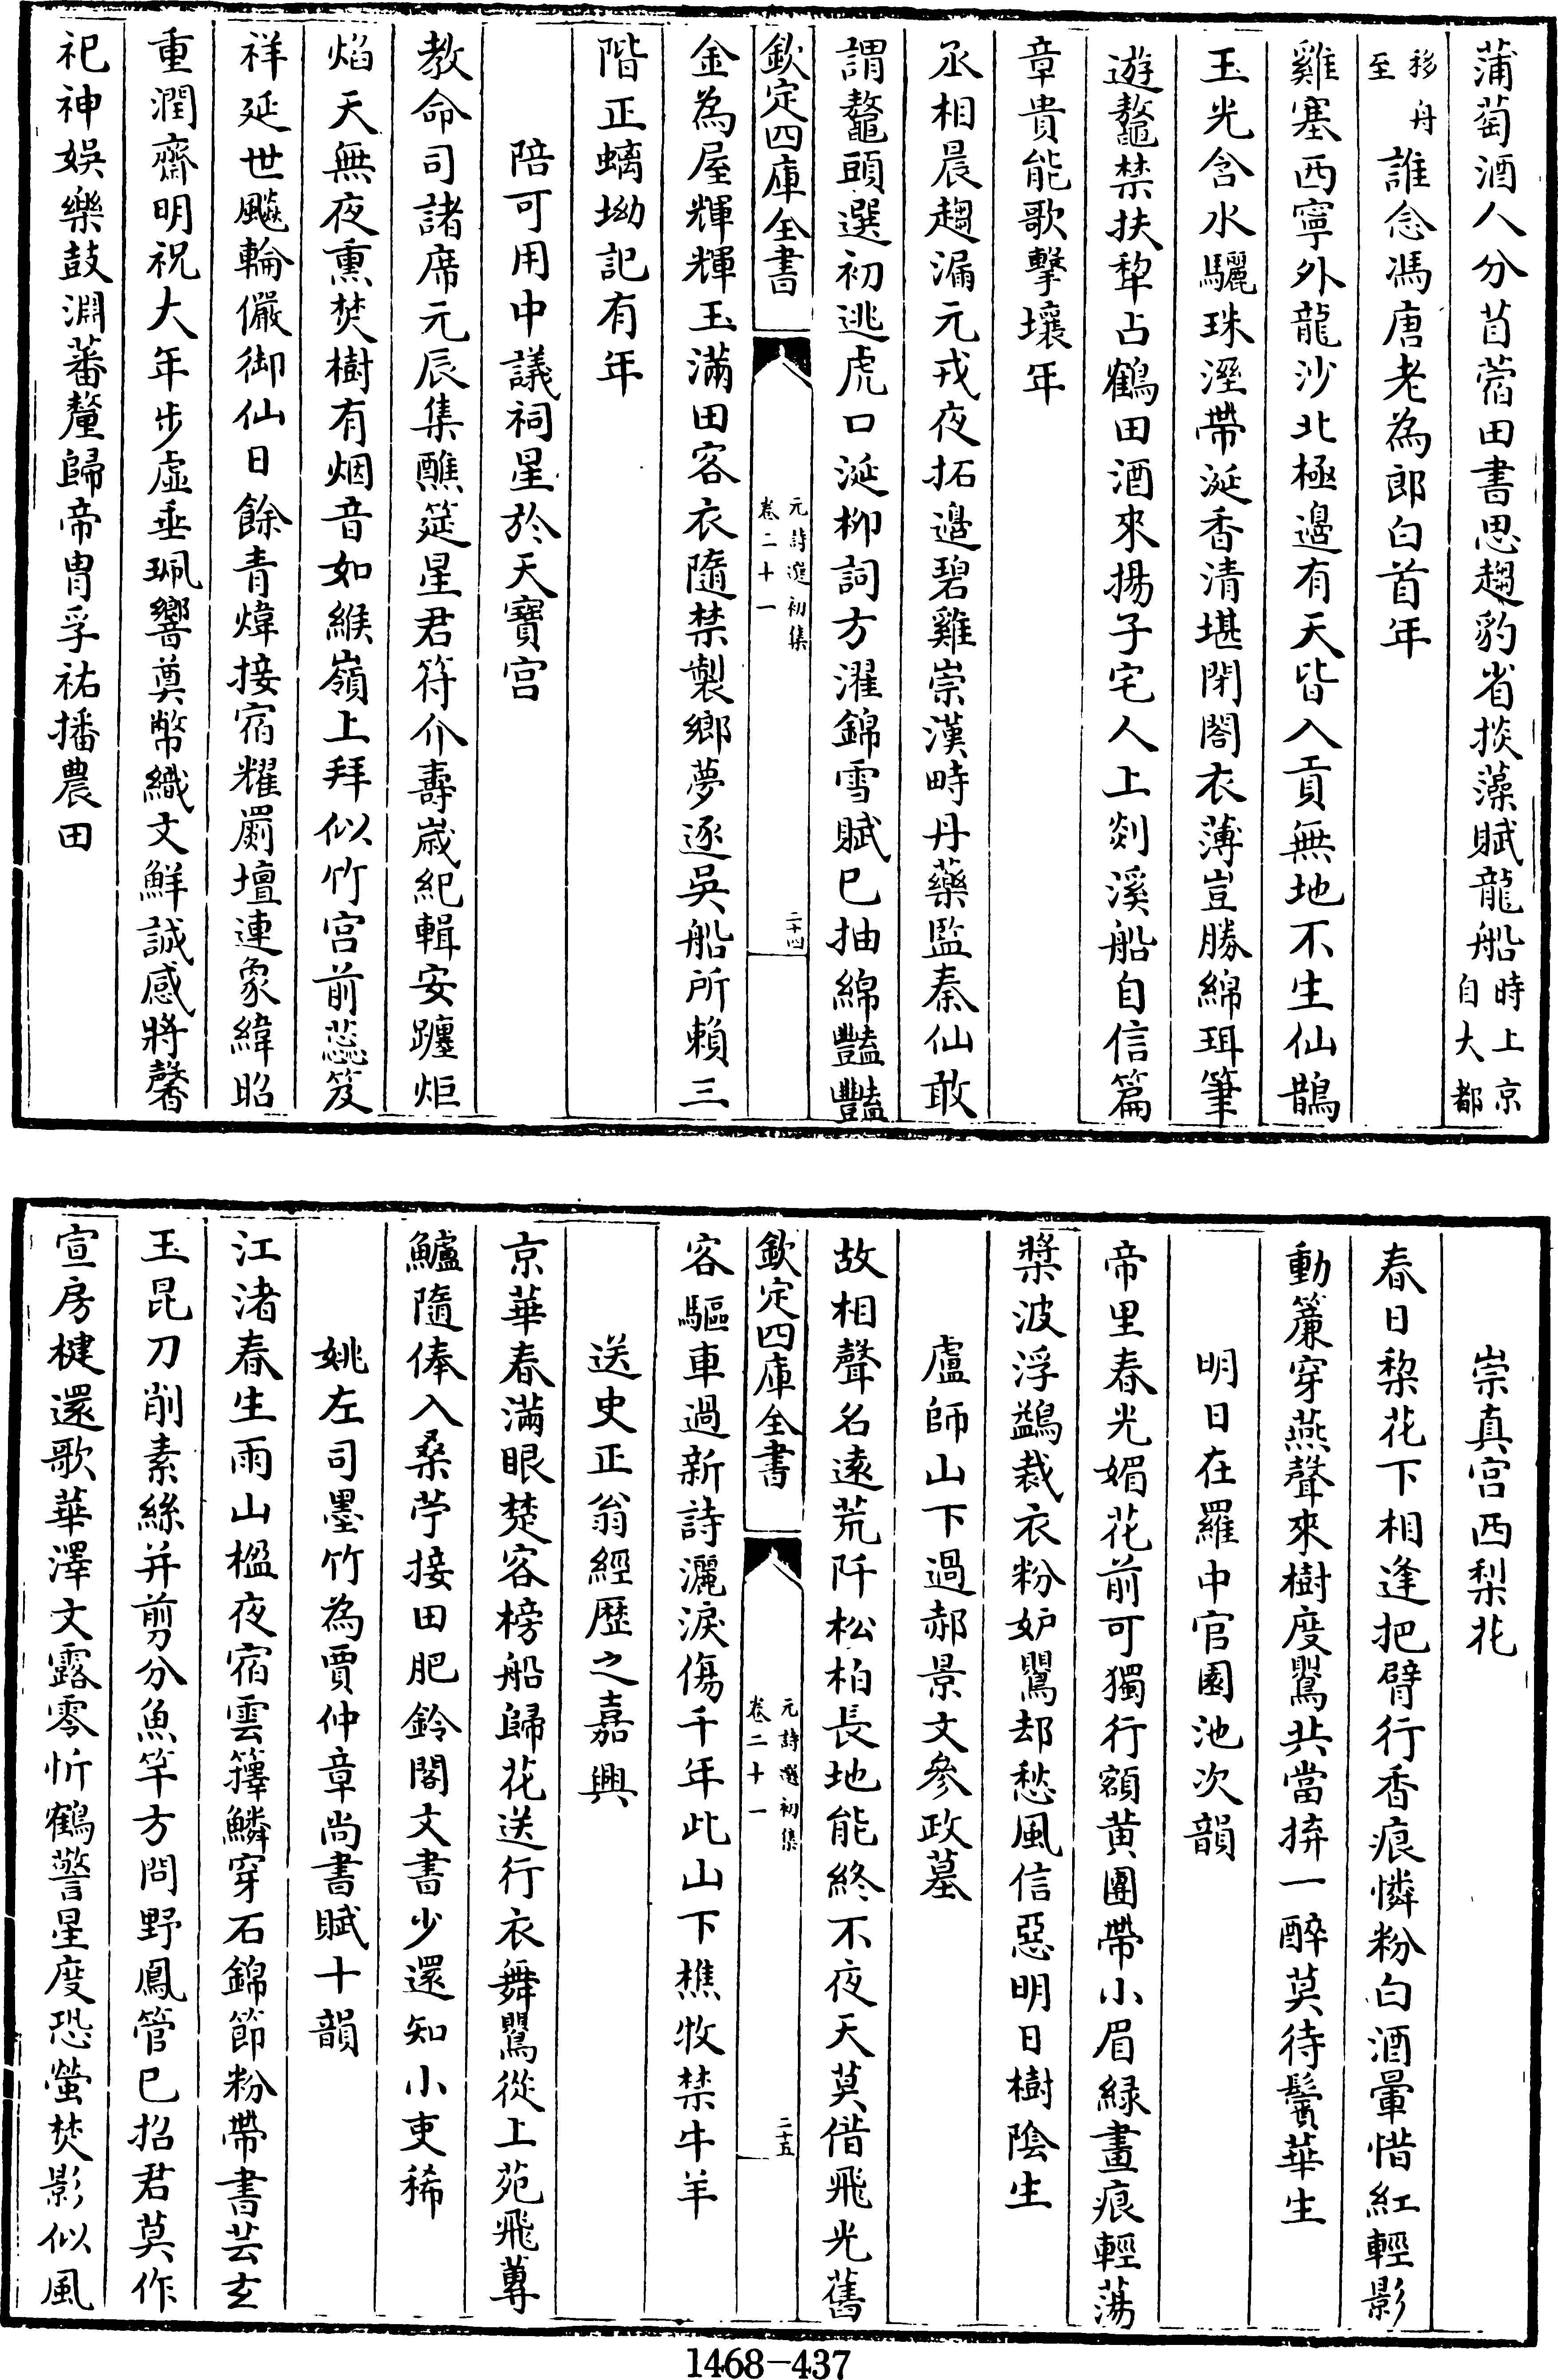 蒲萄酒人分苜蓿田書思趨豹省掞藻賦龍船時上京自大都
移舟至誰念馮唐老為郎白首年
雞塞西寧外龍沙北極邊有天皆入貢無地不生仙鵲
玉光含水驪珠溼帶涎香清堪閉閤衣薄豈勝綿珥筆
遊鼇禁扶犂占鶴田酒來揚子宅人上剡溪船自信篇
章貴能歌擊壤年
丞相晨趨漏元戎夜拓邊碧雞崇漢畤丹藥監秦仙敢
謂鼇頭選初逃虎口涎柳詞方濯錦雪賦已抽綿豔豔
欽定四庫全書
元詩選初集
卷二十一
二十四
金為屋輝輝玉滿田客衣隨禁製鄉夢逐吳船所賴三
階正螭坳記有年
陪可用中議祠星於天寶宮
教命司諸席元辰集醮筵星君符介壽歲紀輯安躔炬
焰天無夜熏焚樹有烟音如緱嶺上拜似竹宮前蕊笈
祥延世飇輪儼御仙日餘青煒接宿耀罽壇連象緯昭
重潤齋明祝大年步虛垂珮響奠幣織文鮮誠感將馨
祀神娛樂鼓淵蕃釐歸帝胄孚祐播農田
崇真宮西梨花
春日棃花下相逢把臂行香痕憐粉白酒暈惜紅輕影
動簾穿燕聲來樹度鸎共當拚一醉莫待鬢華生
明日在羅中官園池次韻
帝里春光媚花前可獨行額黃團帶小眉緑畫痕輕蕩
槳波浮鷁裁衣粉妒鸎却愁風信惡明日樹陰生
盧師山下過郝景文參政墓
故相聲名遠荒阡松柏長地能終不夜天莫借飛光舊
欽定四庫全書
元詩選初集
卷二十一
二十五
客驅車過新詩灑淚傷千年此山下樵牧禁牛羊
送史正翁經歷之嘉興
京華春滿眼楚客榜船歸花送行衣舞鸎從上苑飛蓴
鱸隨俸入桑苧接田肥鈴閣文書少還知小吏稀
姚左司墨竹為賈仲章尚書賦十韻
江渚春生雨山楹夜宿雲籜鱗穿石錦節粉帶書芸玄
玉昆刀削素絲并剪分魚竿方問野鳳管已招君莫作
宣房楗還歌華澤文露零忻鶴警星度恐螢焚影似風
1468-437